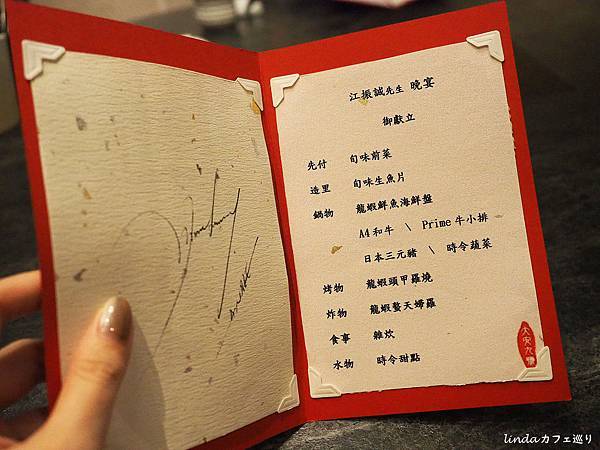 江振誠先生 晚宴
御獻立
先付 旬味前菜
造里 旬味生魚片
鍋物 龍蝦鮮魚海鮮盤
A4和牛 \ Prime牛小排
日本三元豬 \ 時令蔬菜
烤物 龍蝦頭甲羅燒
炸物 龍蝦螯天婦羅
食事 雜炊
水物 時令甜點
lindaカフェ巡り